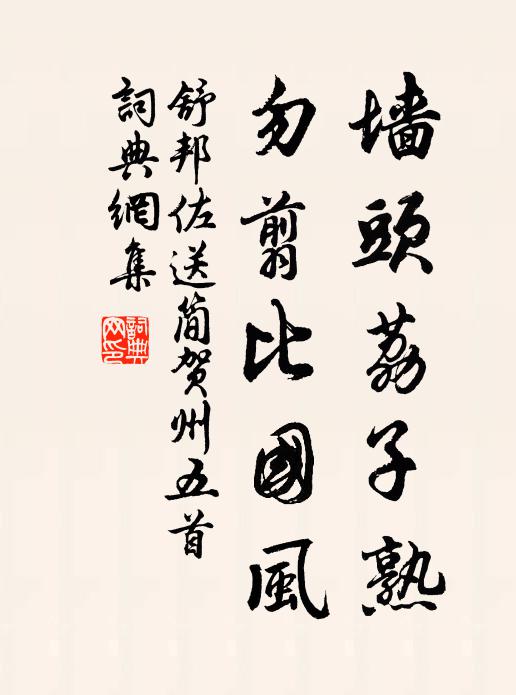 墙頭荔子熟
勿翦比國風
舒邦佐送简贺州五首
詞典網集
詞典网印